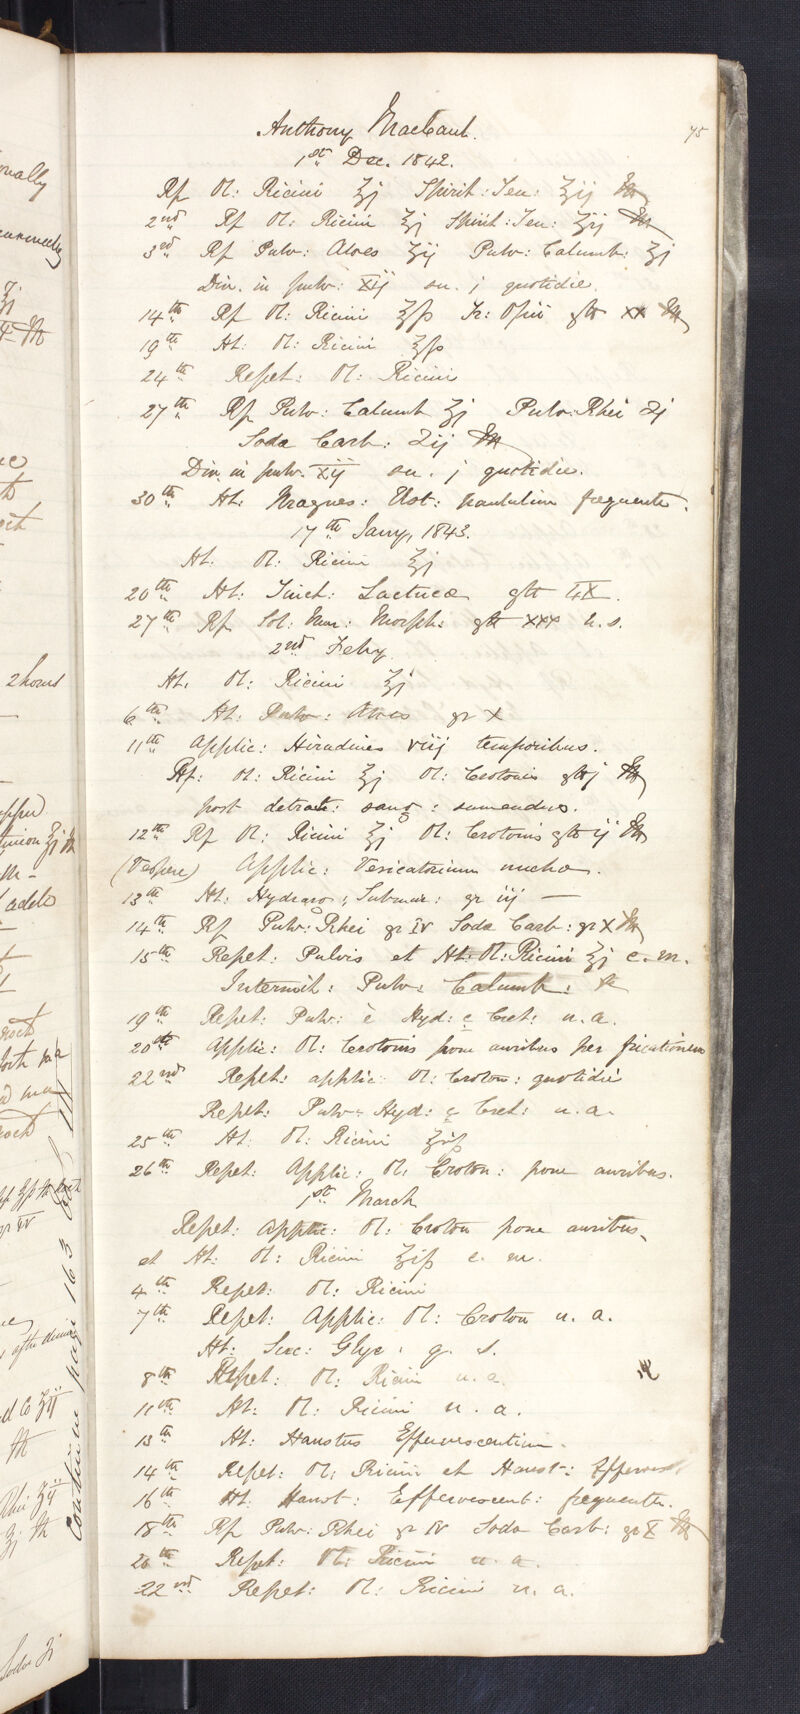 75
Anthony MacCaul.
1st Dec. 1842.
Rp Ol: Ricini ℥j Spirit: Ten: ℥ij M
2nd Rp Ol: Ricini ℥j Spirit: Ten: ℥ij M
3rd Rp Pulv: Aloes ℥ij Pulv: Calumb: ℥j
Div. in pulv: xij su. j quotidie.
14th Rp Ol: Ricini ℥ſs Tr: Opii gtt xx M
19th Ht: Ol: Ricini ℥ſs
24th Repet: Ol: Ricini
27th Rp Pulv: Calumb ℥j Pulv: Rhei ʒj
Soda Carb: ʒij M
Div. in pulv. xij su. j quotidie.
30th Ht: Magnes: Ust: paululum frequenter.
17th Jany, 1843.
Ht. Ol: Ricini ℥j
20th Ht: Tinct: Lactucæ gtt LX.
27th Rp Sol: Mur: Morph: gtt xxx h.s.
2nd Feby.
Ht. Ol: Ricini ℥j
6th Ht: Pulv: Aloes gr X
11th Applic: Hirudines viij temporibus.
Rp: Ol: Ricini ℥j Ol: Crotonis gttj M
post detract: sang: sumendus.
12th Rp Ol: Ricini ℥j Ol: Crotonis gtt ij M
(Vespere) Applic: Vesicatorium nuchæ.
13th Ht: Hydrarg: Submur: gr iij —
14th Rp Pulv: Rhei gr IV Soda Carb: gr X M
15th Repet: Pulvis et Ht: Ol: Ricini ℥j c.m.
Intermit: Pulv: Calumb:
19th Repet: Pulv: è Hyd: c Cret: u.a.
20th Applic: Ol: Crotonis pone auribus per fricationem
22nd Repet: applic: Ol: Croton: quotidie
Repet: Pulv: Hyd: c Cret: u.a.
25th Ht: Ol: Ricini ℥iſs
26th Repet: Applic: Ol: Croton: pone auribus.
1st March
Repet: Applic: Ol: Croton pone auribus,
et Ht: Ol: Ricini ℥iſs c. m.
4th Repet: Ol: Ricini
7th Repet: Applic: Ol: Croton u. a.
Ht: Suc: Glyc: q. s.
8th Repet: Ol: Ricini u.a.
11th Ht: Ol: Ricini u. a.
13th Ht: Haustus Effervescentium.
14th Repet: Ol: Ricini et Haust: Efferves
16th Ht: Haust: Effervescent: frequenter.
18th Rp Pulv: Rhei gr IV Soda Carb: gr X M
20th Repet: Ol: Ricini u. a.
22nd Repet: Ol: Ricini u. a.
2 hours
Continue page 163